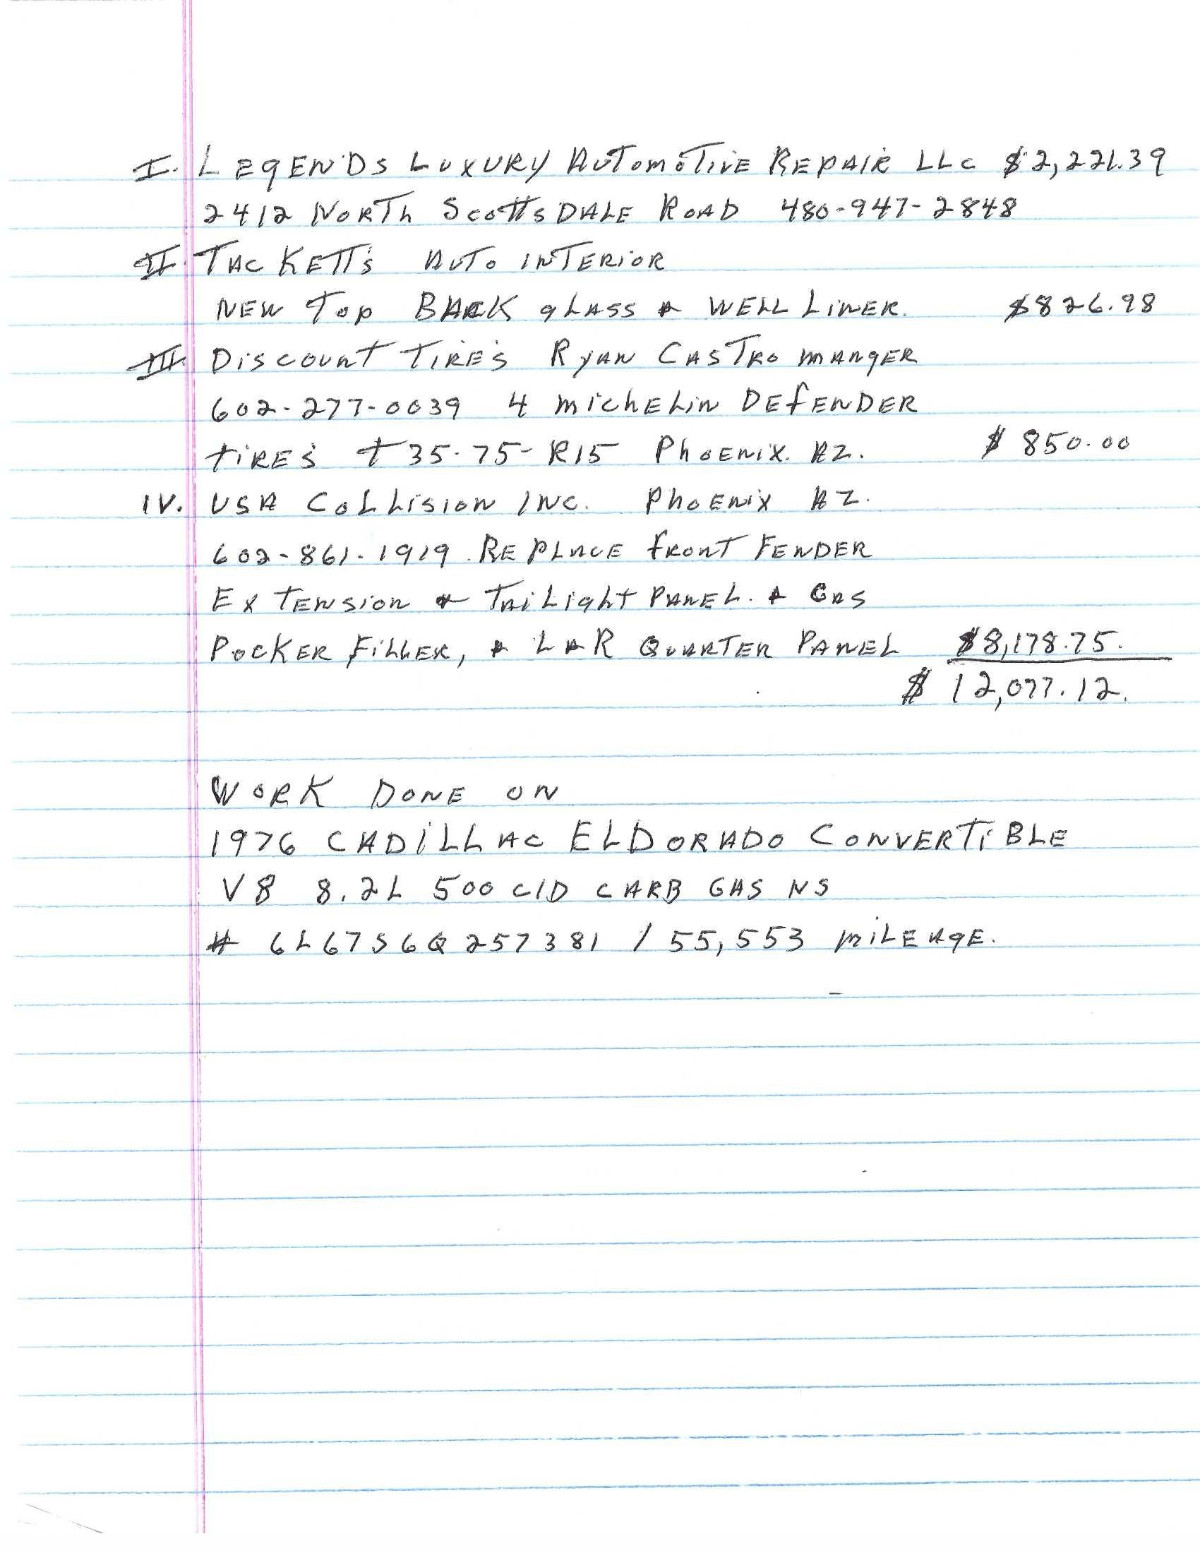 I. LEGENDS LUXURY AUTOMOTIVE REPAIR LLC $2,221.39
2412 NORTH SCOTTSDALE ROAD 480-947-2848
II. TACKETT'S AUTO INTERIOR
NEW TOP BACK GLASS & WELL LINER. $826.98
III. DISCOUNT TIRE'S RYAN CASTRO MANGER
602-277-0039 4 MICHELIN DEFENDER
TIRE'S T35-75-R15 PHOENIX. AZ. $850.00
IV. USA COLLISION INC. PHOENIX AZ.
602-861-1919. REPLACE FRONT FENDER
EXTENSION & TAILIGHT PANEL. & GAS
POCKER FILLER, & L&R QUARTER PANEL $8,178.75.
$12,077.12.
WORK DONE ON
1976 CADILLAC ELDORADO CONVERTIBLE
V8 8.2L 500 CID CARB GAS NS
# 6L67S6Q257381 / 55,553 MILEAGE.